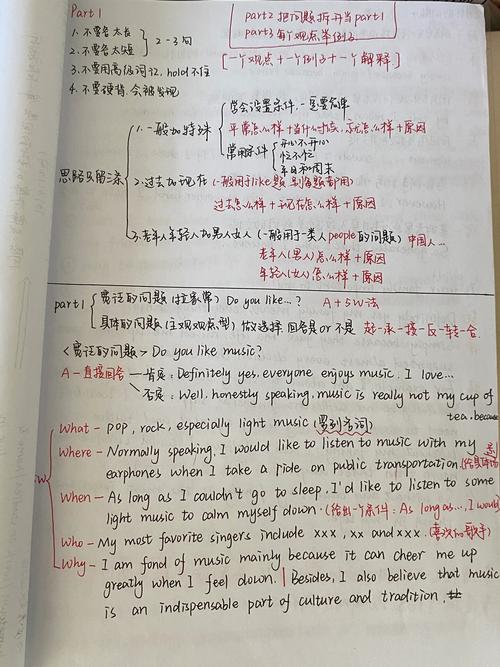 Part 1
1. 不要答太长
2. 不要答太短 } 2-3句
3. 不要用高级词汇, hold不住
4. 不要硬背, 会被发现
part2 把问题拆开当part1
part3 每个观点举例子
[一个观点+一个例子+一个解释]
思路只有三条
1. 一般加特殊
学会设置条件, 一定要
平常怎么样+当什么时候, 我就怎么样+原因
常用条件
开心不开心
忙不忙
平日和周末
2. 过去加现在 (一般用于like题, 别的题都用)
过去怎么样+现在怎么样+原因
3. 老年人年轻人加男人女人 (一般用于一类人people的问题) 中国人...
老年人(男人)怎么样+原因
年轻人(女人)怎么样+原因
part1
宽泛的问题 (拉家常) Do you like...? A+5W法
具体的问题 (主观观点型) 做选择 回答是or不是 起-承-接-反-转-合
<宽泛的问题> Do you like music?
A-直接回答 肯定: Definitely yes, everyone enjoys music. I love...
否定: Well, honestly speaking, music is really not my cup of
tea, because
What - pop, rock, especially light music (罗列名词)
Where - Normally speaking, I would like to listen to music with my
earphones when I take a ride on public transportation.
When - As long as I couldn't go to sleep. I'd like to listen to some
light music to calm myself down. (给出一个条件: As long as..., I would
Who - My most favorite singers include xxx, xx and xxx. (喜欢的歌手)
Why - I am fond of music mainly because it can cheer me up
greatly when I feel down. | Besides, I also believe that music
is an indispensable part of culture and tradition. #